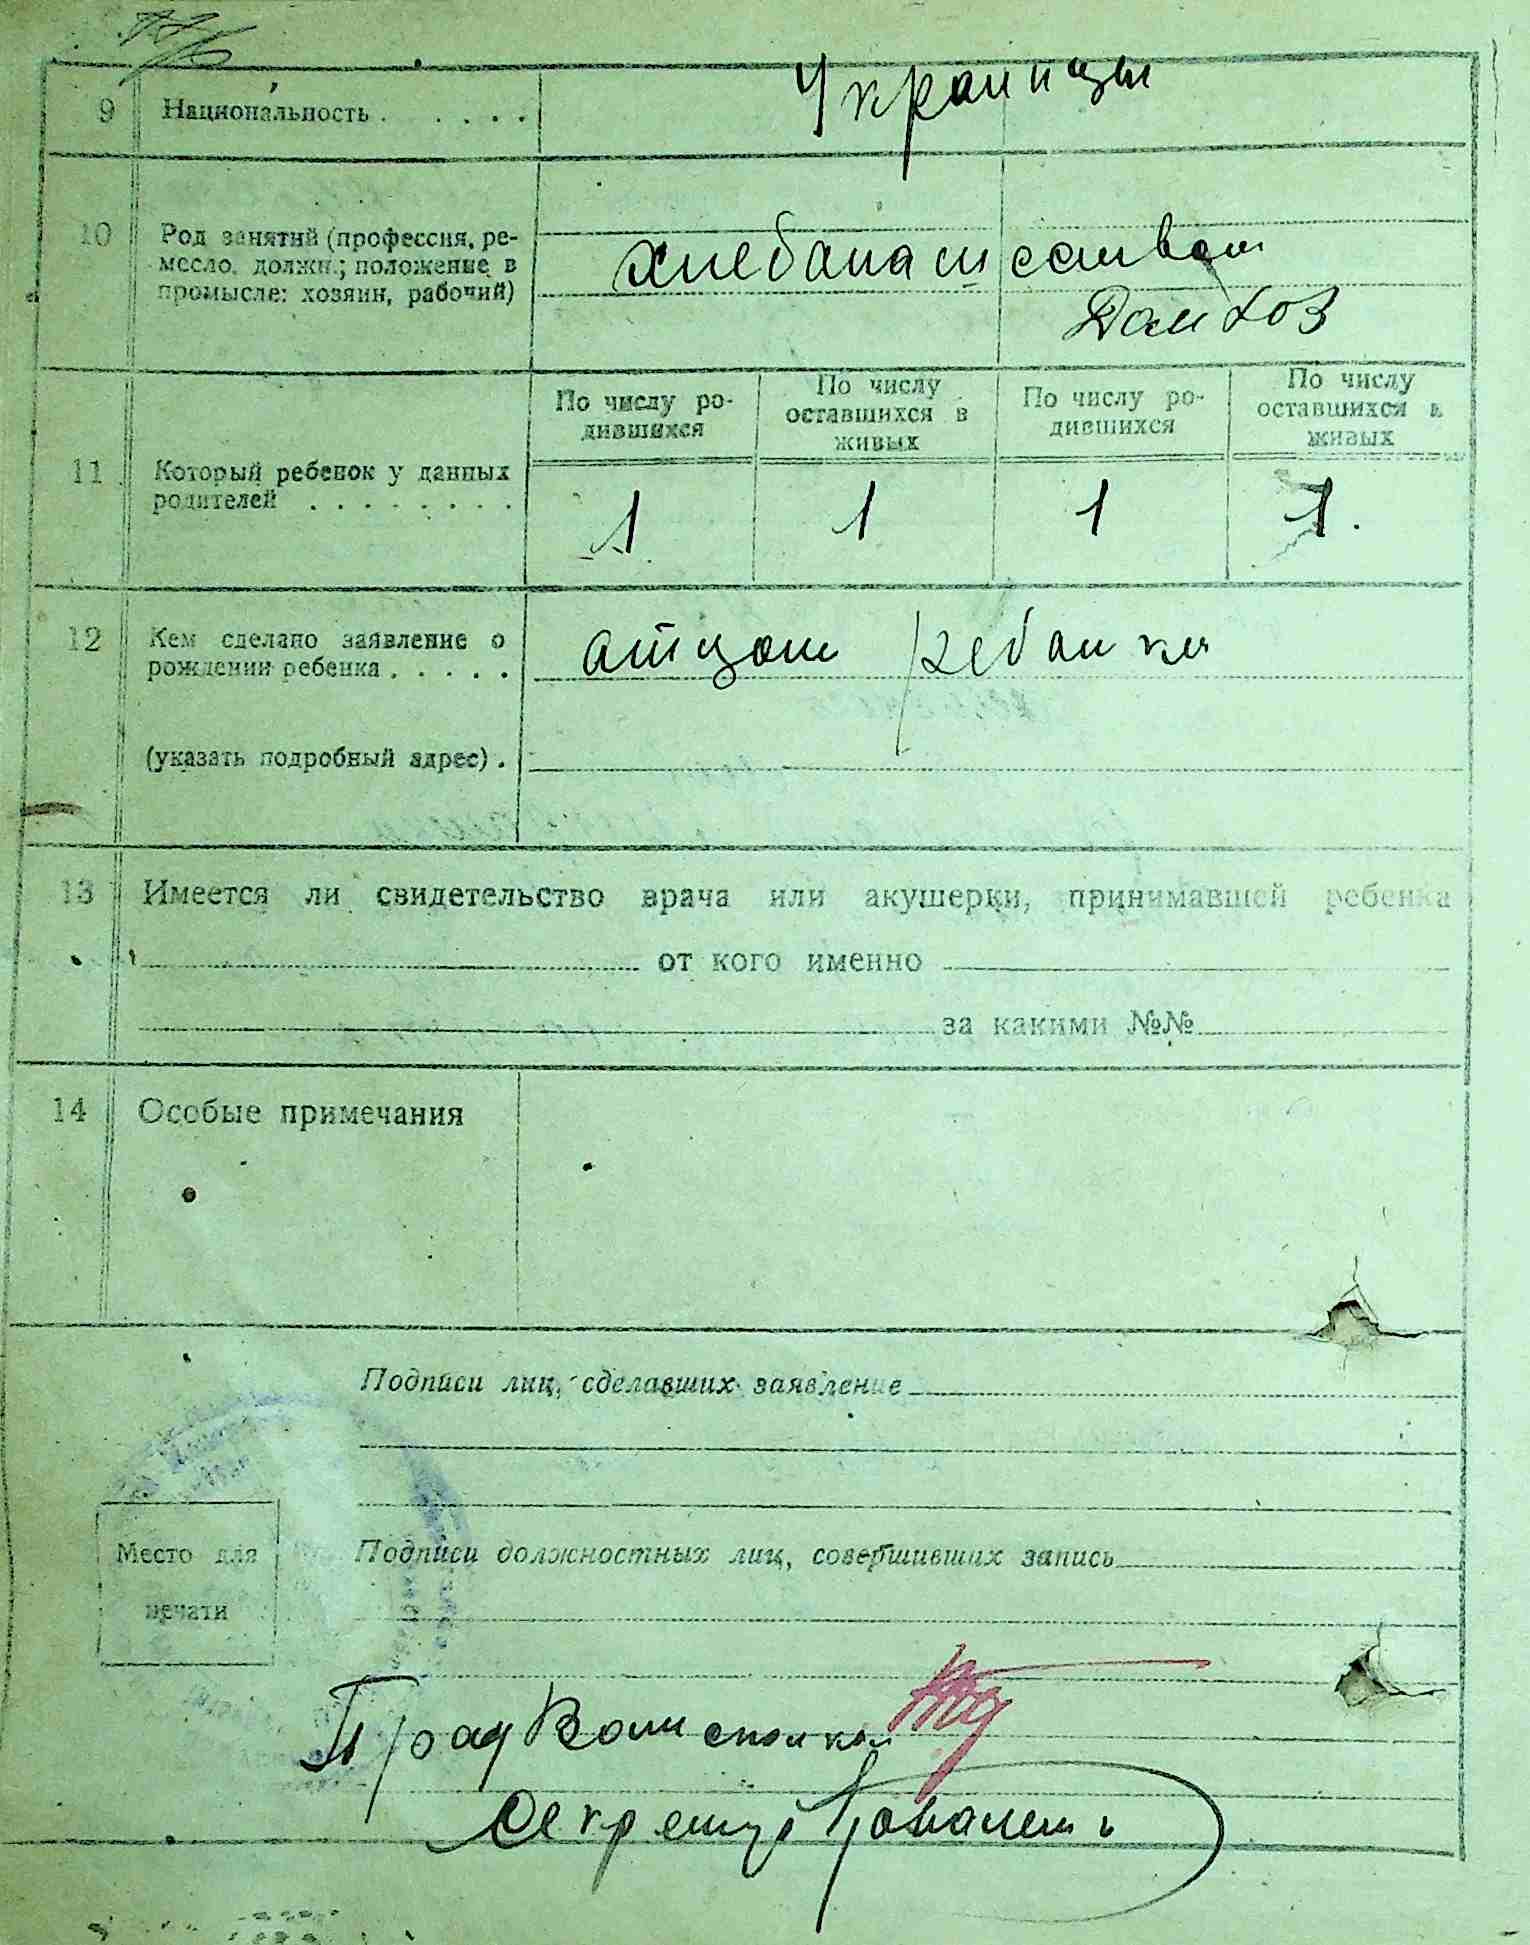 9 Национальность . . . . . Украинцы
10 Род занятий (профессия, ре-
месло, должн.; положение в
промысле: хозяин, рабочий)
Домхоз
11 Который ребенок у данных
родителей . . . . . . . .
По числу ро-
дившихся
По числу
оставшихся в
живых
По числу ро-
дившихся
По числу
оставшихся в
живых
1 1 1 1.
12 Кем сделано заявление о
рождении ребенка . . . . .
атцом ребанка
(указать подробный адрес) .
13 Имеется ли свидетельство врача или акушерки, принимавшей ребенка
от кого именно
за какими №№
14 Особые примечания
Подписи лиц, сделавших заявление
Подписи должностных лиц, совершивших запись
Место для
печати